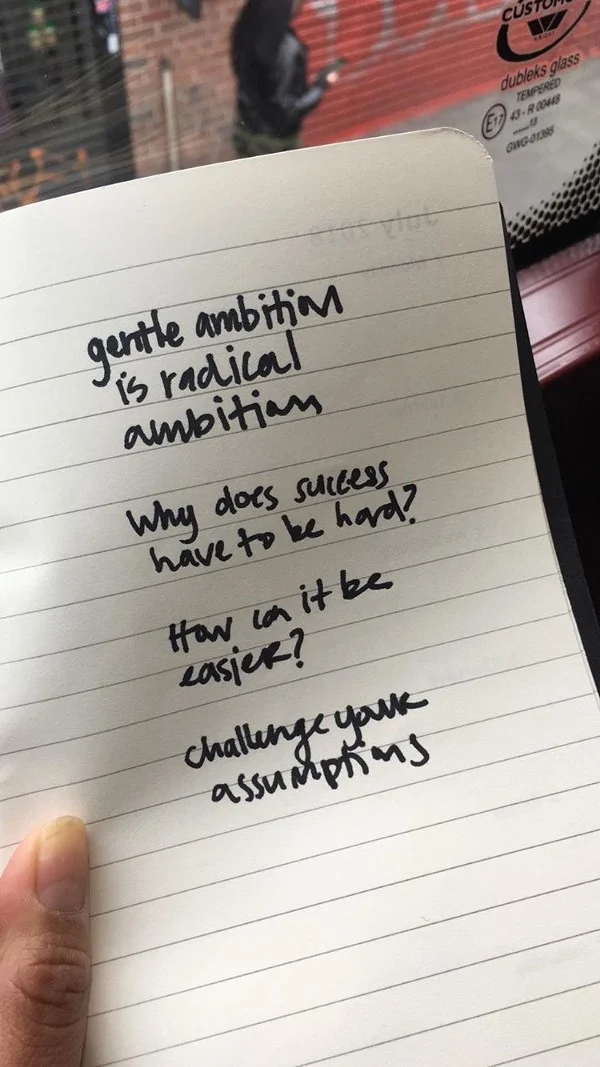 CUSTOM
dubleks glass
TEMPERED
E17 43 - R 00448
13
GWG-01395
July 2018
gentle ambition
is radical
ambition
Why does success
have to be hard?
How can it be
easier?
challenge your
assumptions